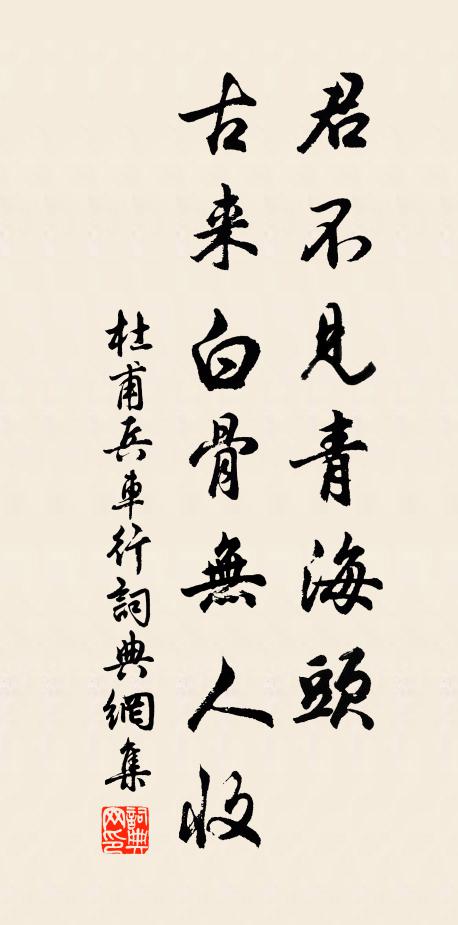 君不見青海頭
古来白骨無人收
杜甫兵車行詞典網集
詞典网印